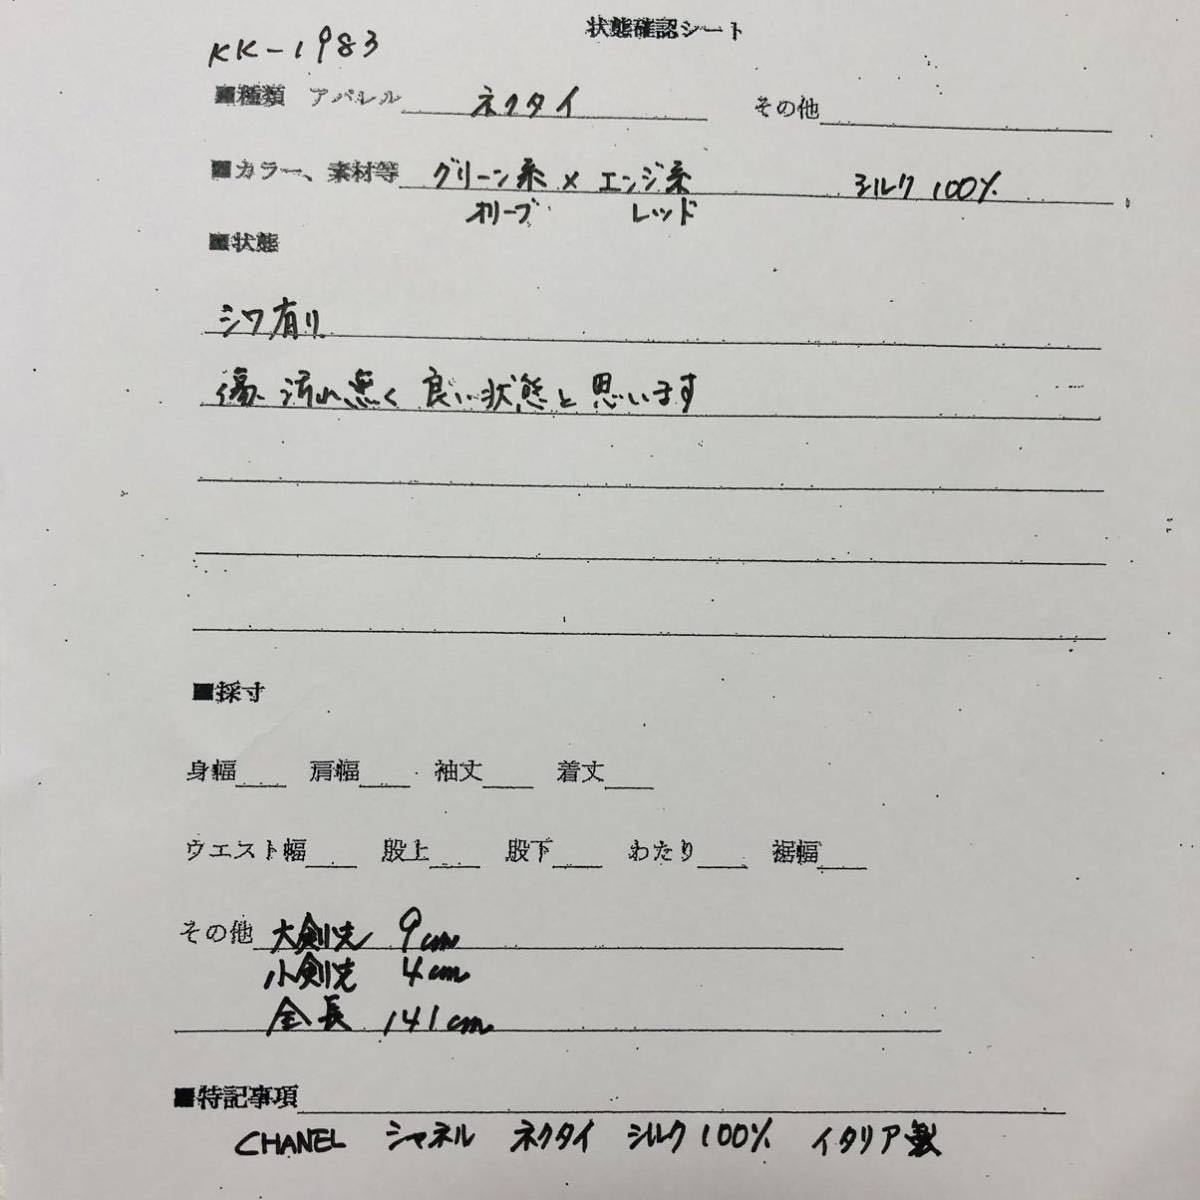 状態確認シート
KK-1983
■種類 アパレル ネクタイ その他
■カラー、素材等 グリーン系 × エンジ系 シルク 100%
オリーブ レッド
■状態
シワ有り
傷、汚れ無く 良い状態と思います
■採寸
身幅 肩幅 袖丈 着丈
ウエスト幅 股上 股下 わたり 裾幅
その他 大剣先 9cm
小剣先 4cm
全長 141cm
■特記事項
CHANEL シャネル ネクタイ シルク 100% イタリア製